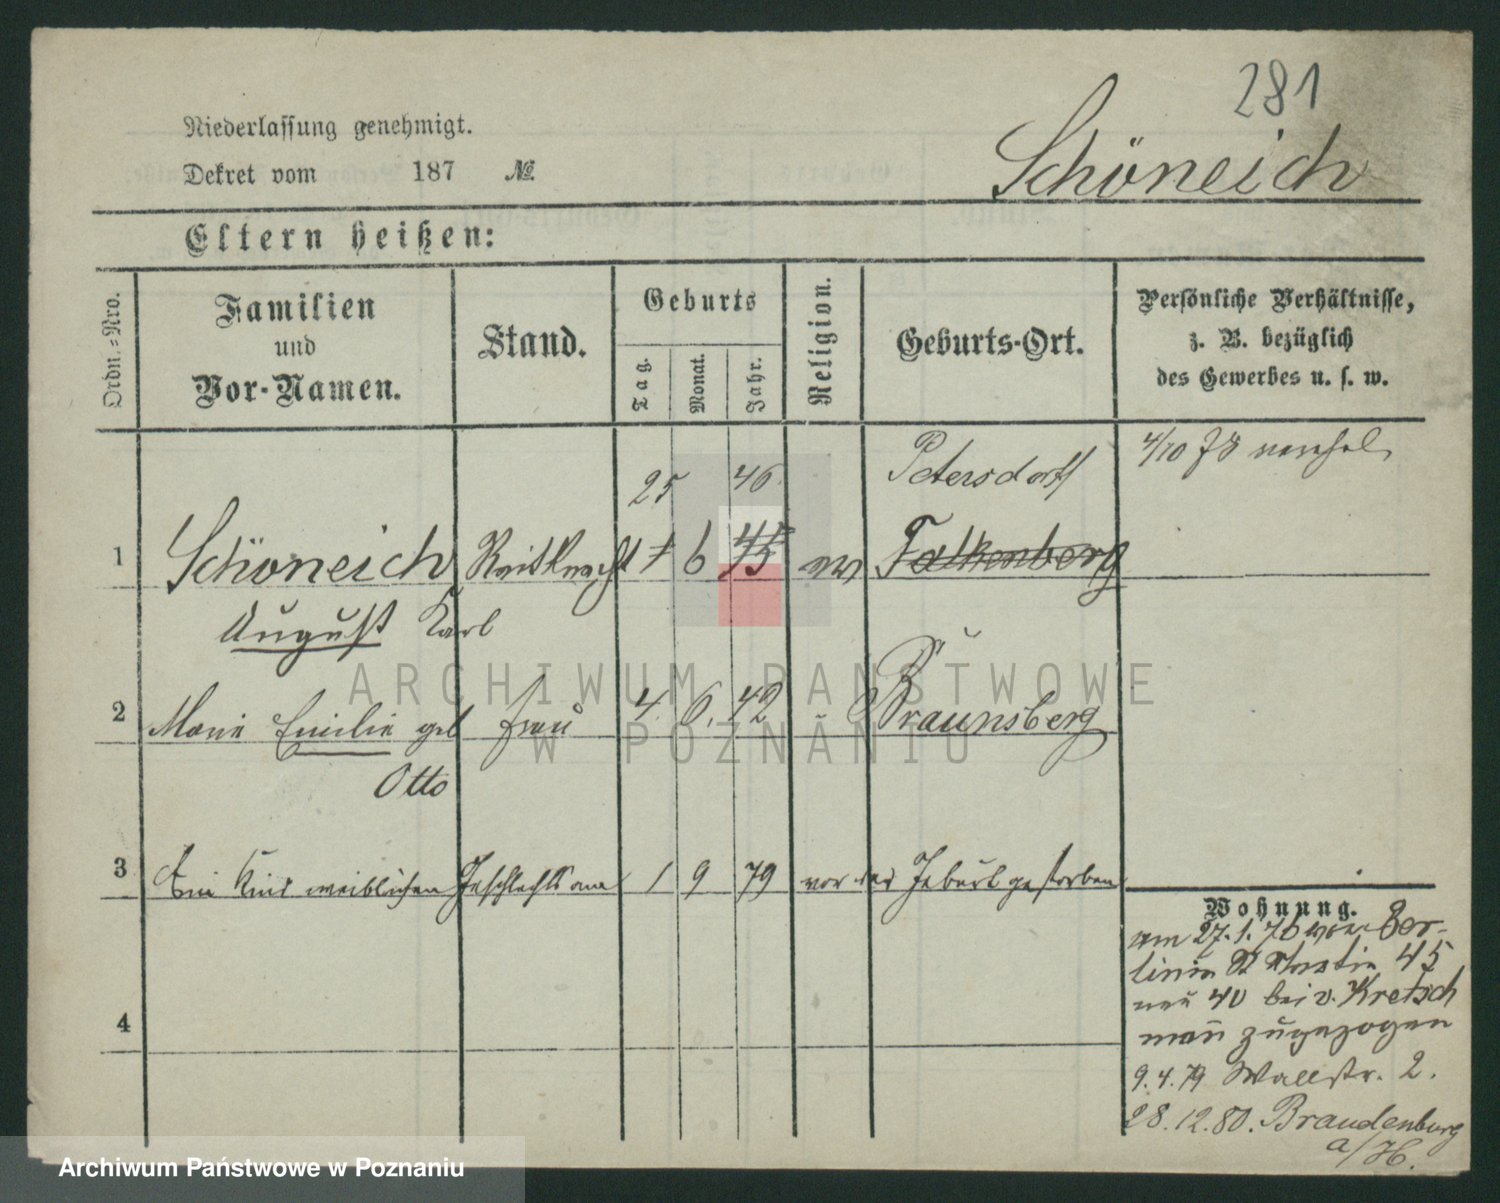 281
Niederlassung genehmigt.
Dekret vom 187 №
Schöneich
Eltern heißen:
Ordn.=Nro.
Familien
und
Vor-Namen.
Stand.
Geburts
Tag.
Monat.
Jahr.
Religion.
Geburts-Ort.
Persönliche Verhältnisse,
z. B. bezüglich
des Gewerbes u. s. w.
4/10 78
25 46 Petersdorff
1 Schöneich Reitknecht 6 45 ev Falkenberg
August Karl
2 Marie Emilie geb Frau 4. 6. 42 Braunsberg
Otto
3 Ein Kind weiblichen Geschlechts am 1 9 79 vor der Geburt gestorben
4
Wohnung.
am 27.1.76 von Ber-
lin St Martin 45
neu 40 bei v. Kretsch
man zugezogen
9.4.79 Wallstr. 2.
28.12.80. Brandenburg
a/H.
ARCHIWUM PAŃSTWOWE
W POZNANIU
Archiwum Państwowe w Poznaniu